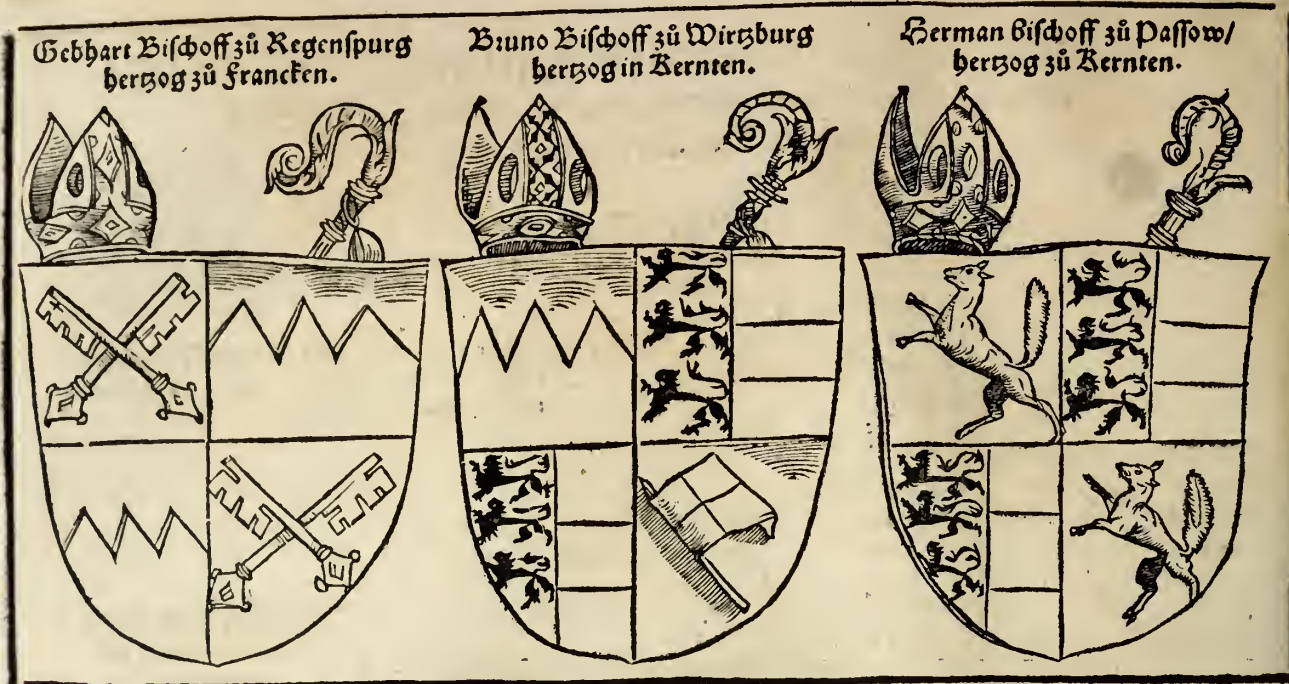 Gebhart Bischoff zů Regenspurg
hertzog zů Francken.
Bruno Bischoff zů Wirtzburg
hertzog in Kernten.
Herman bischoff zů Passow/
hertzog zů Kernten.